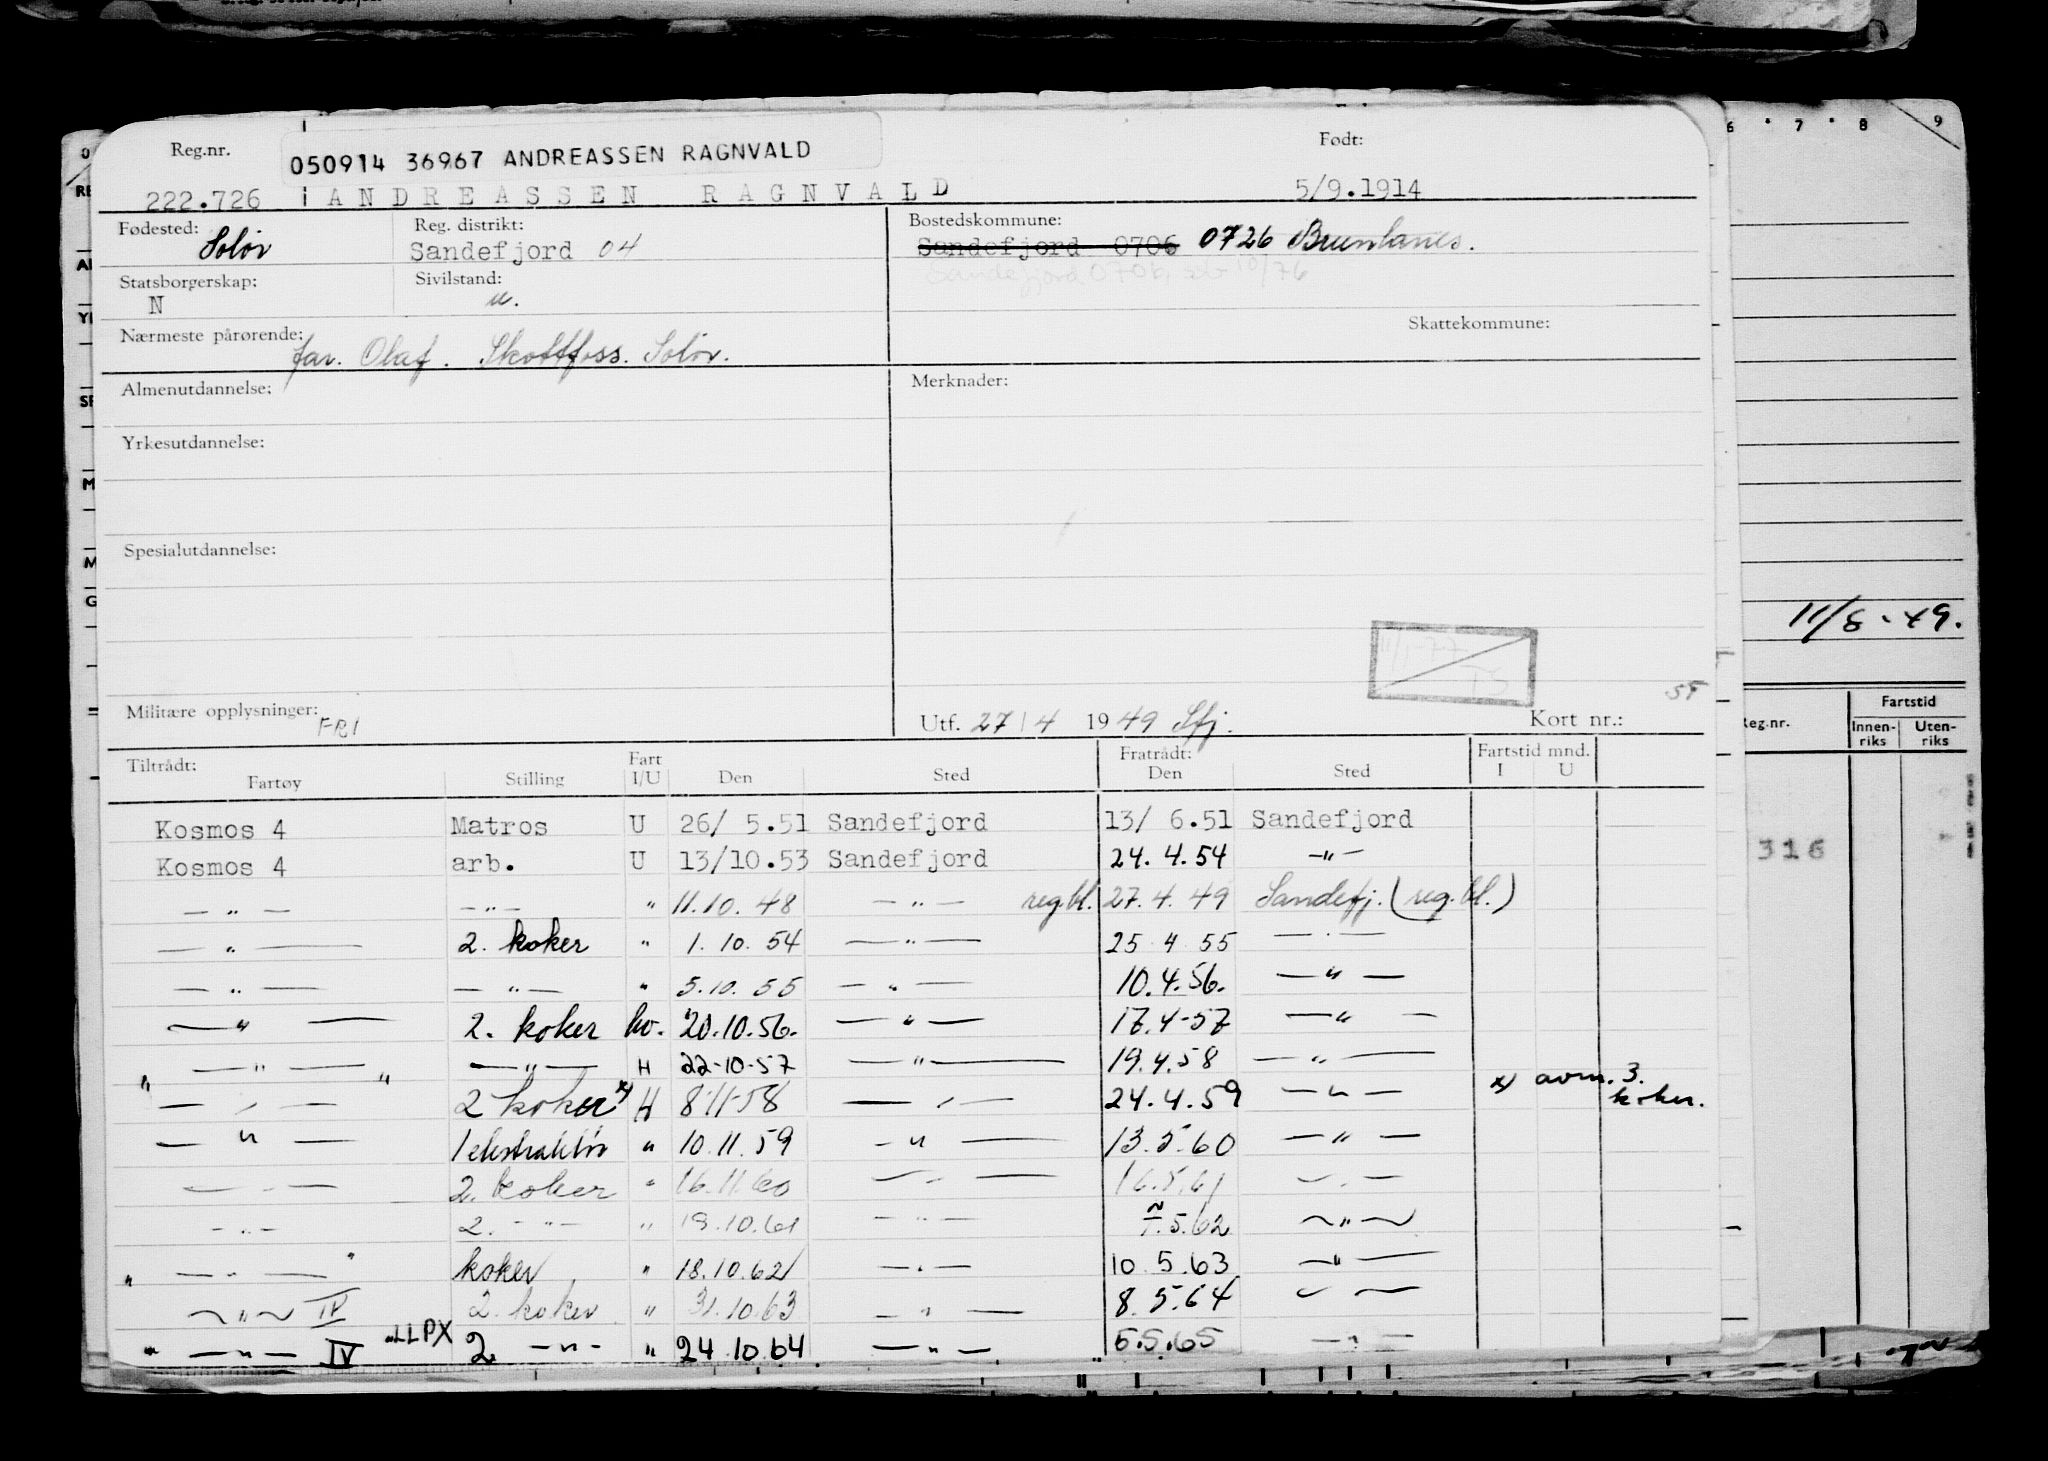 Reg.nr.
050914 36967 ANDREASSEN RAGNVALD
Født:
222.726 ANDREASSEN RAGNVALD 5/9.1914
Fødested: Solør
Reg. distrikt: Sandefjord 04
Bostedskommune: Sandefjord 0706 0726 Brunlanes.
Sandefjord 0706, 10/76
Statsborgerskap: N
Sivilstand: u.
Nærmeste pårørende: far. Olaf. Skottfoss. Solør.
Skattekommune:
Almenutdannelse:
Merknader:
Yrkesutdannelse:
Spesialutdannelse:
11/8-49.
Militære opplysninger: FRI
Utf. 27/4 1949 Sfj.
Kort nr.:
Reg.nr. Fartstid
Innen-riks Uten-riks
Tiltrådt: Fart Fratrådt: Fartstid mnd.
Fartøy Stilling I/U Den Sted Den Sted I U
Kosmos 4 Matros U 26/ 5.51 Sandefjord 13/ 6.51 Sandefjord
Kosmos 4 arb. U 13/10.53 Sandefjord 24. 4.54 —"—
316
— " — — " — " 11.10. 48 — " — reg.bl. 27. 4. 49 Sandefj. (reg.bl.)
— " — 2. koker " 1. 10. 54 — " — 25 4 55 — " —
— " — — " — " 5.10. 55 — " — 10.4.56. — " —
— " — 2. koker hv. 20.10.56. — " — 17.4-57 — " —
" — " — " — " — H 22-10-57 — " — 19.4.58 — " —
— " — 2 koker x) H 8-11-58 — " — 24.4.59 — " — x) avm. 3. koker.
— " — 1 ekstraktør " 10.11.59 — " — 13.5.60 — " —
— " — 2. koker " 16.11.60 — " — 16.5.61 — " —
— " — 2. — " — " 19.10.61 — " — 5.62 — " —
" — " — " koker " 18.10.62 — " — 10.5.63 — " —
— " — IV 2. koker " 31.10.63 — " — 8.5.64 — " —
" — " — IV LLPX 2 — " — " 24.10.64 — " — 5.5.65 — " —